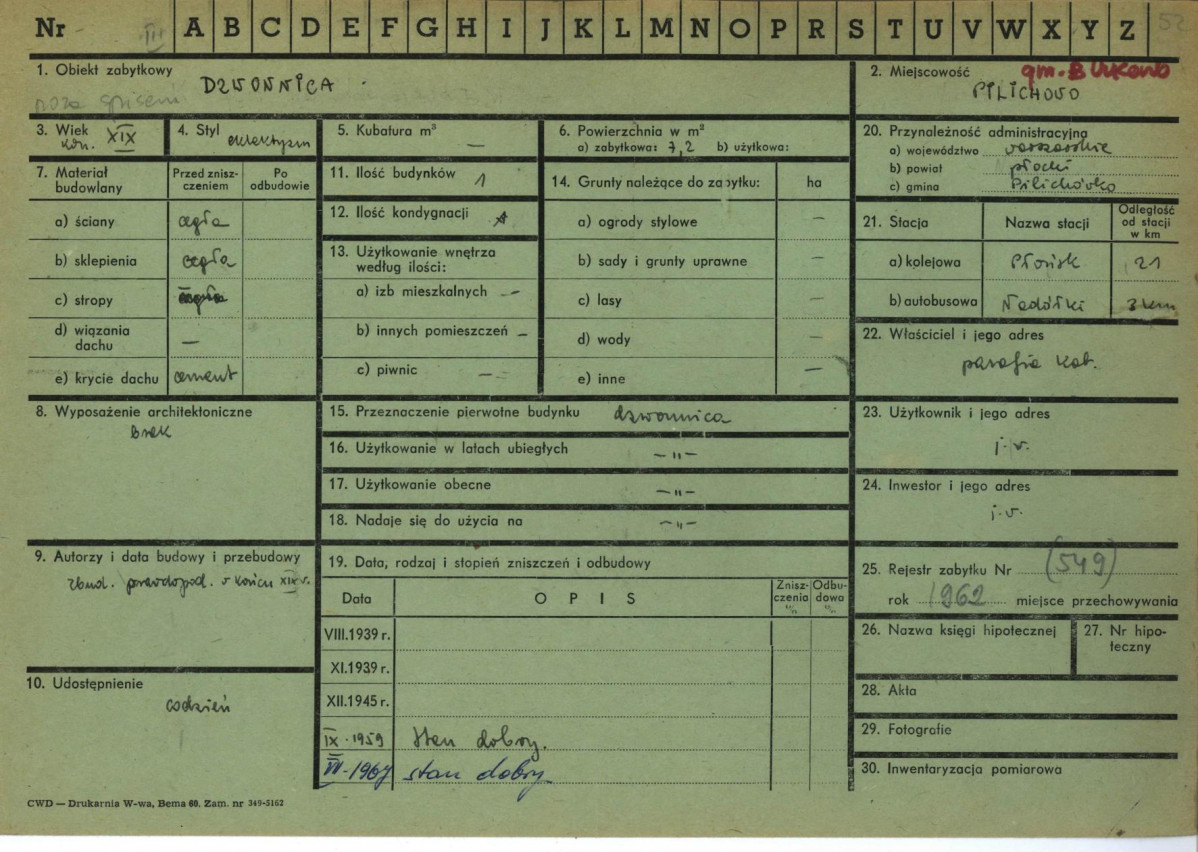 Nr III A B C D E F G H I J K L M N O P R S T U V W X Y Z 52
1. Obiekt zabytkowy
DZWONNICA
poza spisem
2. Miejscowość gm. Bulkowo
PILICHOWO
3. Wiek
kon. XIX
4. Styl
eklektyzm
5. Kubatura m³
—
6. Powierzchnia w m²
a) zabytkowa: 7,2 b) użytkowa:
20. Przynależność administracyjna
a) województwo warszawskie
b) powiat płocki
c) gmina Pilichówko
7. Materiał budowlany
Przed zniszczeniem
Po odbudowie
a) ściany cegła
b) sklepienia cegła
c) stropy
d) wiązania dachu —
e) krycie dachu cement
11. Ilość budynków 1
12. Ilość kondygnacji
13. Użytkowanie wnętrza według ilości:
a) izb mieszkalnych —
b) innych pomieszczeń —
c) piwnic —
14. Grunty należące do zabytku: ha
a) ogrody stylowe —
b) sady i grunty uprawne —
c) lasy —
d) wody —
e) inne —
21. Stacja Nazwa stacji Odległość od stacji w km
a) kolejowa Płońsk 21
b) autobusowa Nadółki 3 km
22. Właściciel i jego adres
parafia kat.
8. Wyposażenie architektoniczne
brak
15. Przeznaczenie pierwotne budynku dzwonnica
16. Użytkowanie w latach ubiegłych —"—
17. Użytkowanie obecne —"—
18. Nadaje się do użycia na —"—
23. Użytkownik i jego adres
j.w.
24. Inwestor i jego adres
j.w.
9. Autorzy i data budowy i przebudowy
zbud. prawdopod. w końcu XIX w.
19. Data, rodzaj i stopień zniszczeń i odbudowy
Data OPIS Zniszczenia % Odbudowa %
VIII.1939 r.
XI.1939 r.
XII.1945 r.
IX.1959 Stan dobry.
1967 stan dobry
25. Rejestr zabytku Nr (549)
rok 1962 miejsce przechowywania
26. Nazwa księgi hipotecznej
27. Nr hipoteczny
10. Udostępnienie
codzień
28. Akta
29. Fotografie
30. Inwentaryzacja pomiarowa
CWD — Drukarnia W-wa, Bema 60. Zam. nr 349-5162